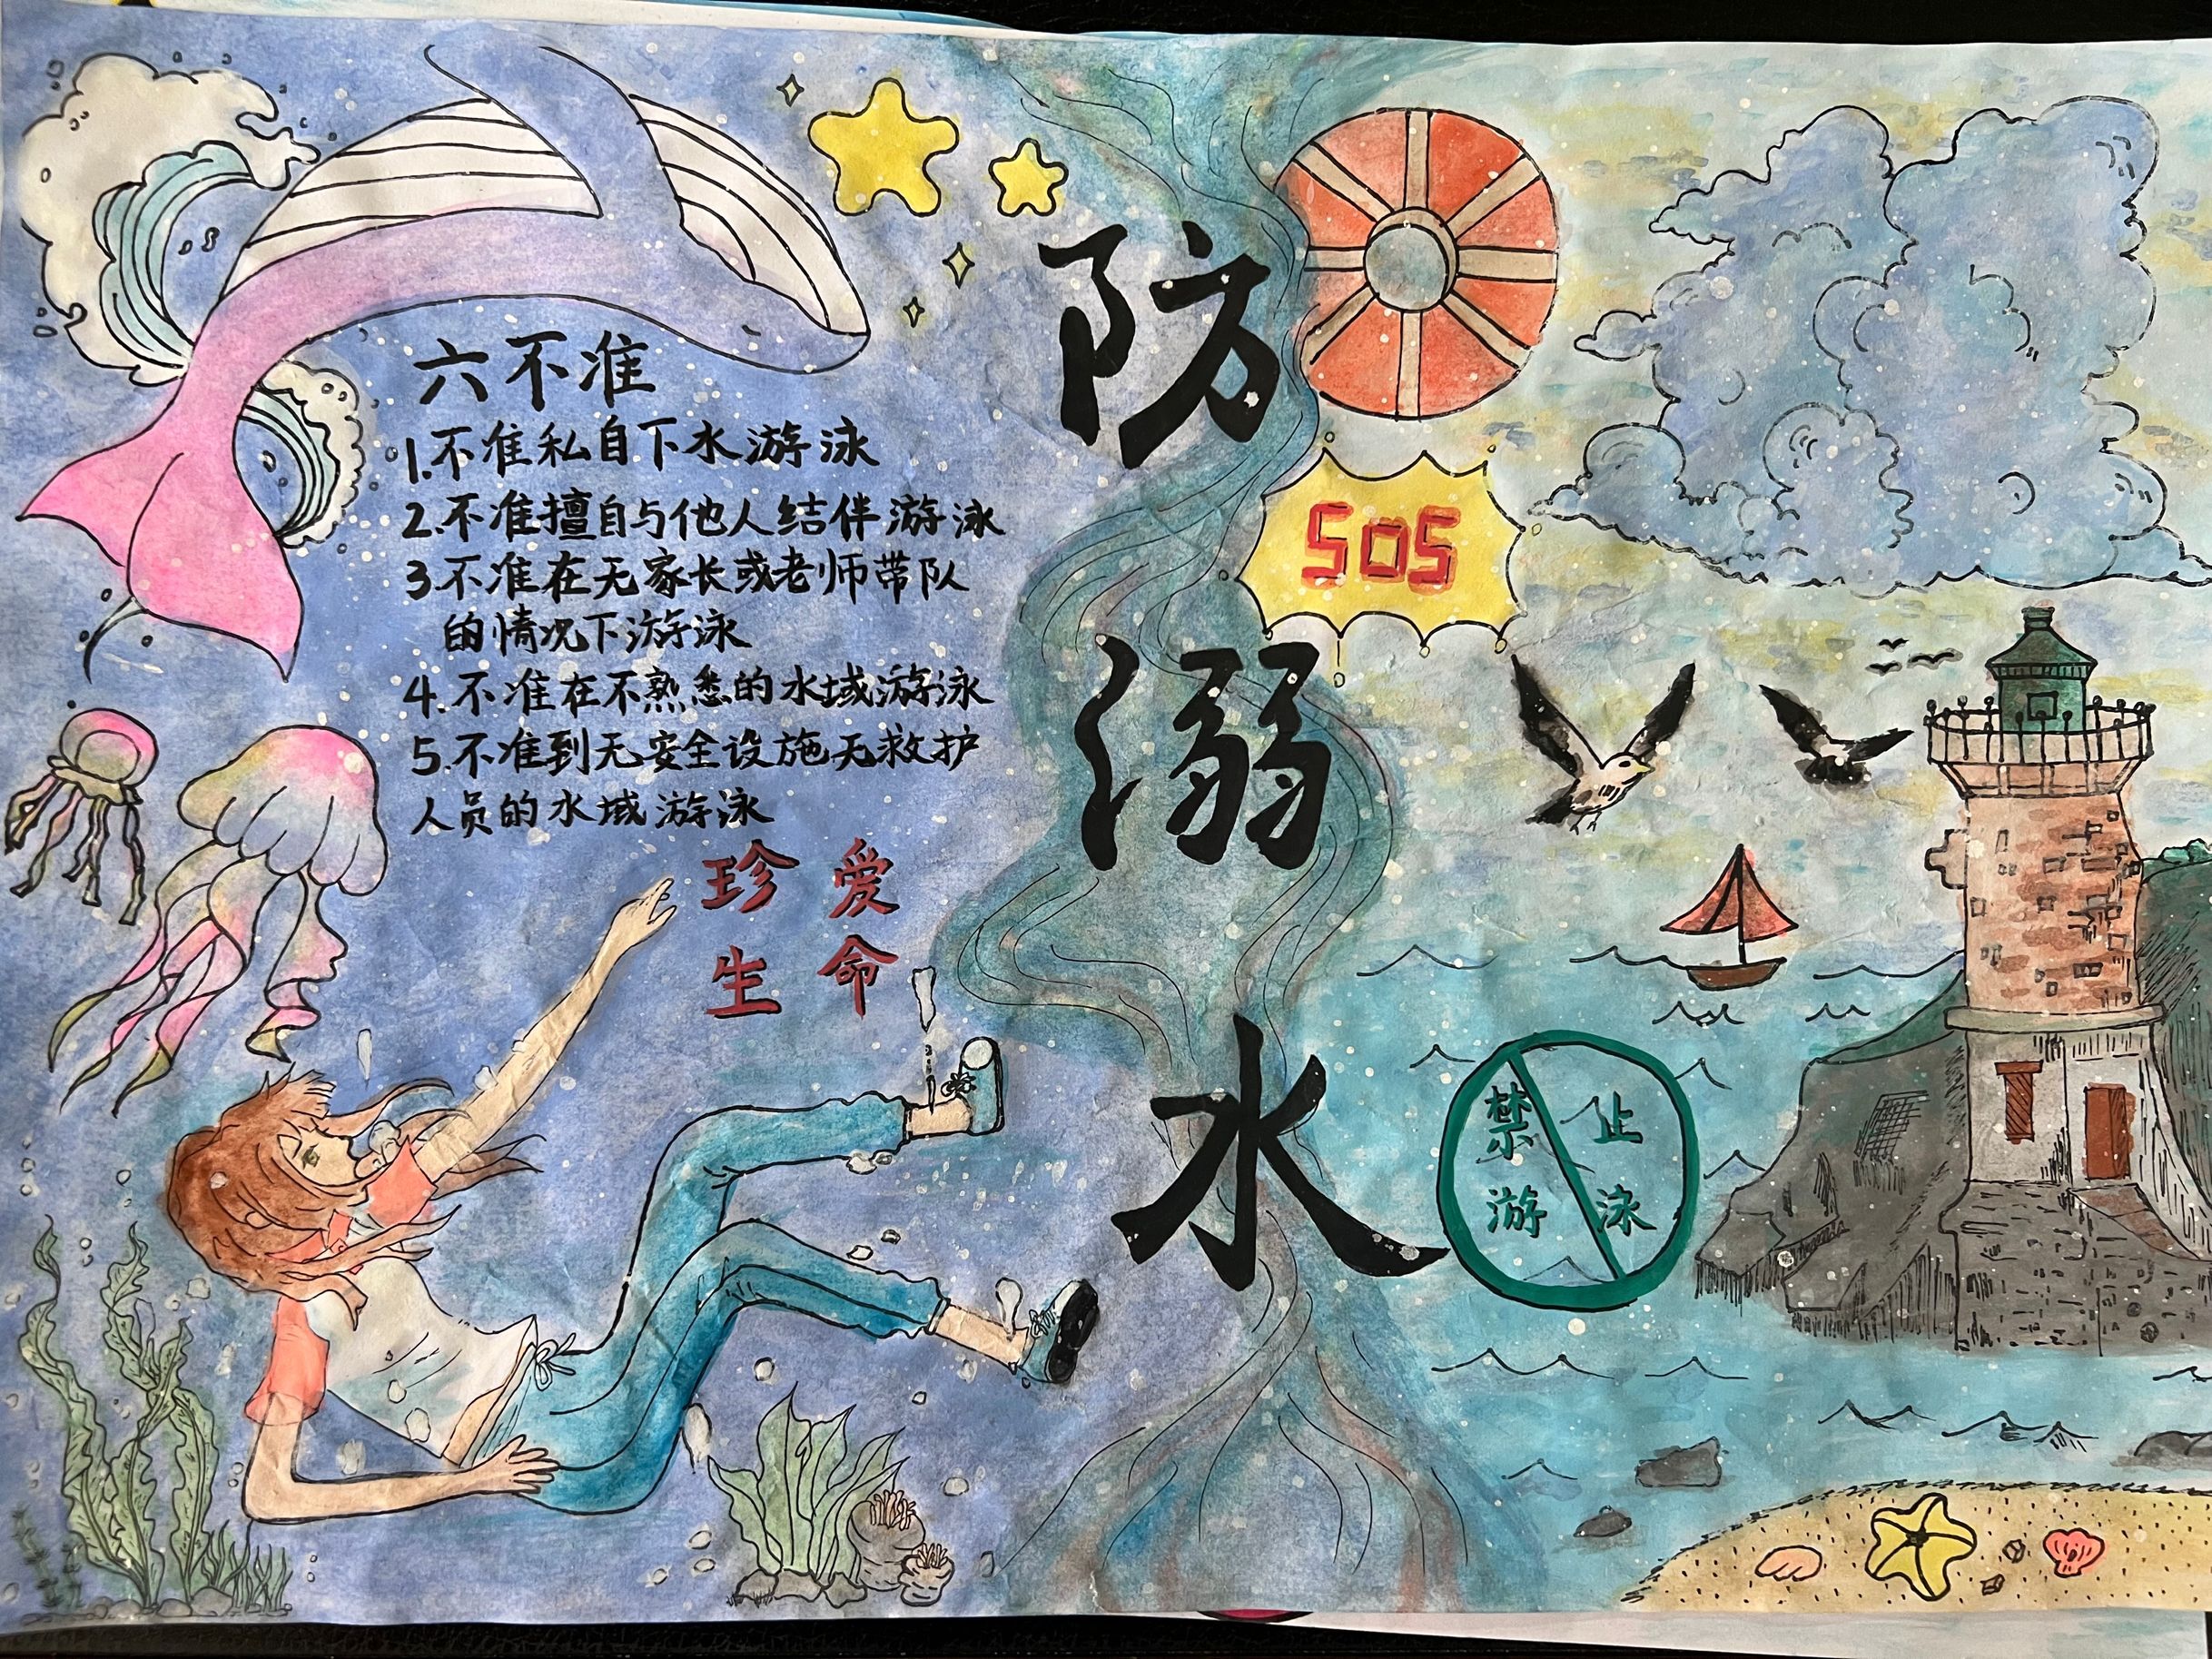 六不准
1.不准私自下水游泳
2.不准擅自与他人结伴游泳
3不准在无家长或老师带队
的情况下游泳
4.不准在不熟悉的水域游泳
5.不准到无安全设施无救护
人员的水域游泳
珍爱
生命
防
溺
水
SOS
禁止
游泳